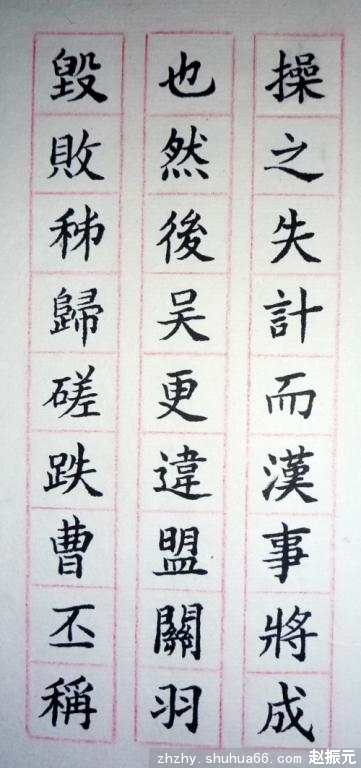 操之失計而漢事將成
也然後吴更違盟關羽
毀敗秭歸磋跌曹丕稱
zhzhy.shuhua66.com 赵振元